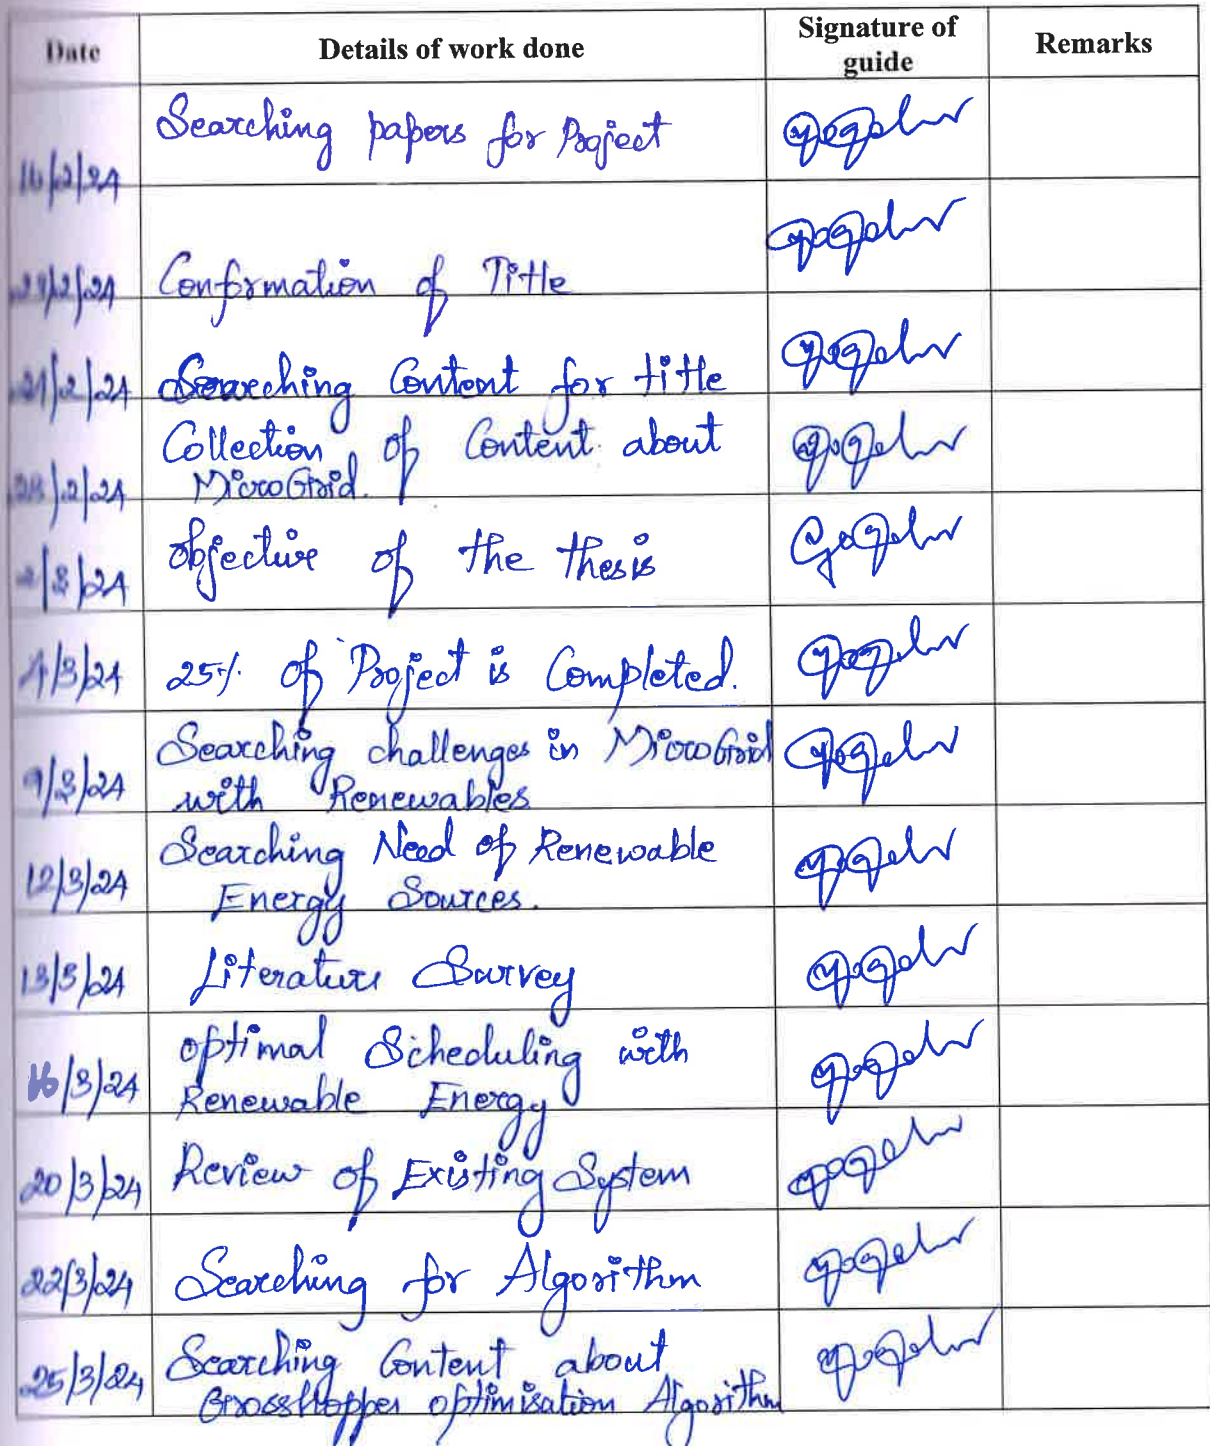 Date Details of work done Signature of guide Remarks
16/2/24 Searching papers for Project
Conformation of Title
21/2/24 Searching Content for title
Collection of Content about
28/2/24 MicroGrid.
2/3/24 Objective of the thesis
4/3/24 25% of Project is Completed.
Searching challenges in MicroGrid
9/3/24 with Renewables
Searching Need of Renewable
12/3/24 Energy Sources.
13/3/24 Literature Survey
optimal Scheduling with
16/3/24 Renewable Energy
20/3/24 Review of Existing System
22/3/24 Searching for Algorithm
Searching Content about
25/3/24 Grosshopper optimisation Algorithm